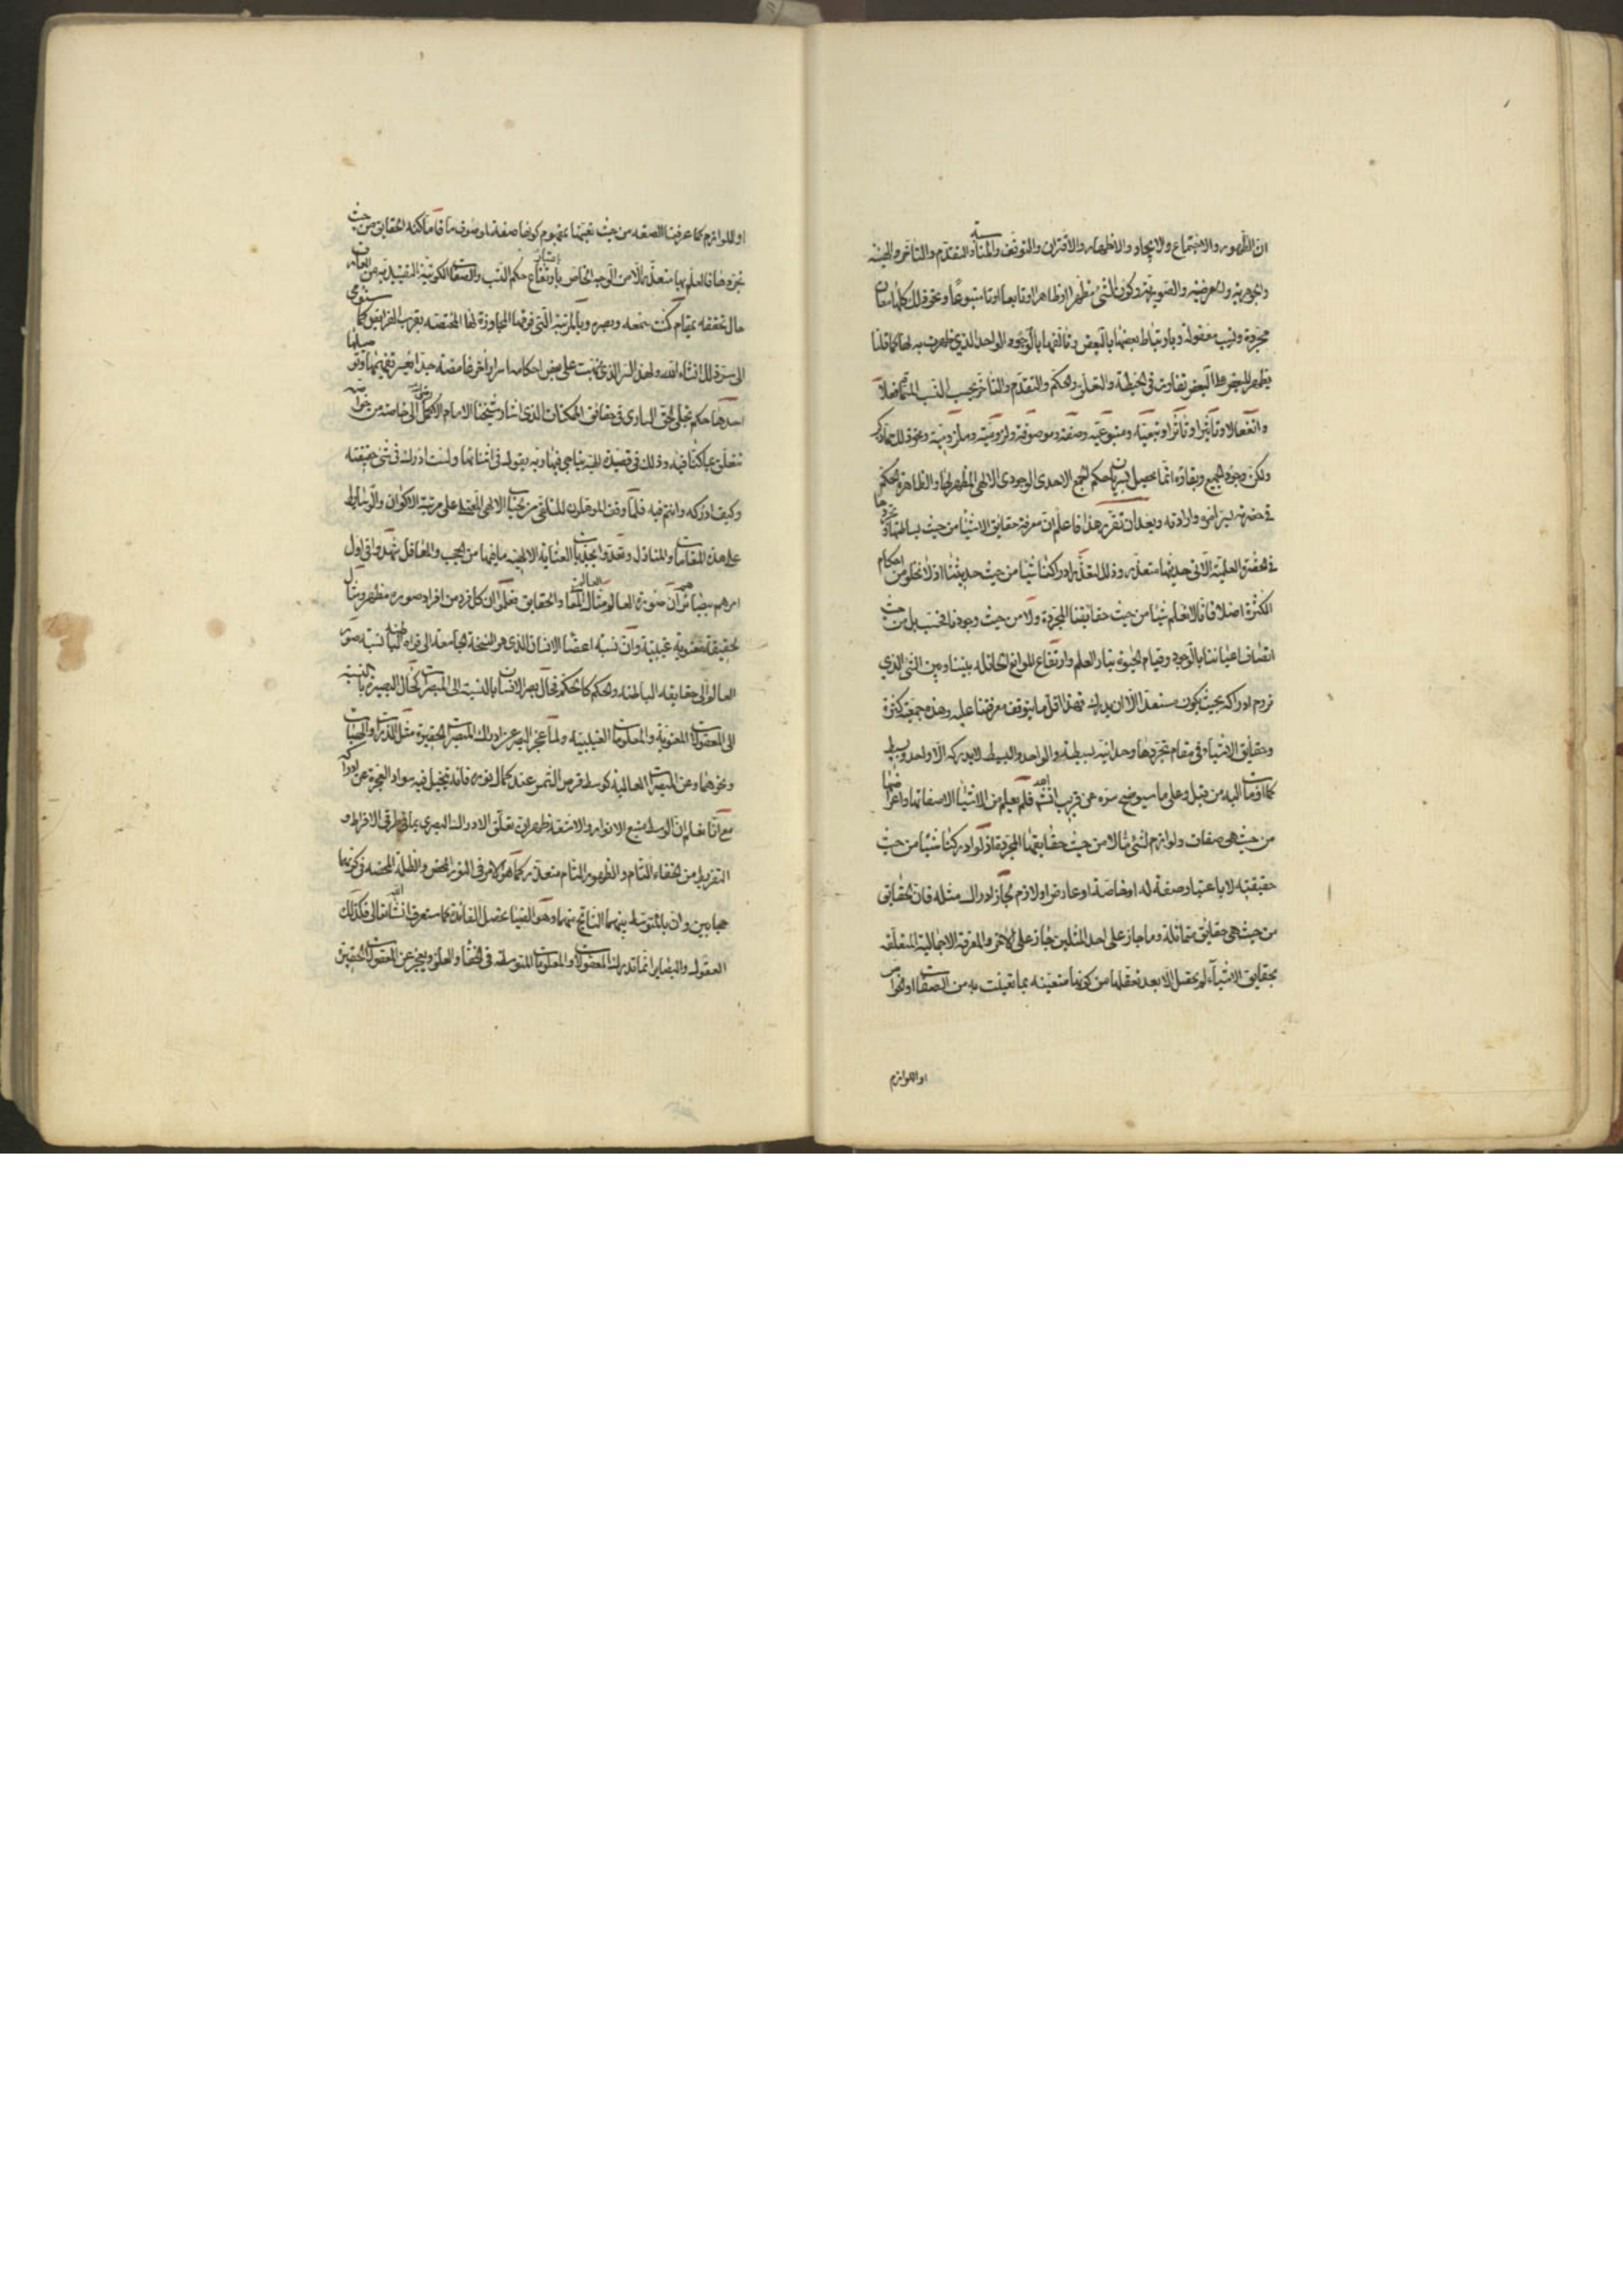 ان الظهور والاجتماع والايجاد والاظهار والاقتران والتوقف والمناسبة والتقدم والتاخر والهيئة
والجوهرية والعرضية والصورية وكون الشئ مظهرا او ظاهرا او تابعا او متبوعا ونحو ذلك كلها معان
مجردة ونسب معقولة وبارتباط بعضها بالبعض وتالفها بالوجود الواحد الذي ظهرت به لها كما قلنا
يظهر للبعض على البعض تفاوت في الحيطة والتعلق والحكم والتقدم والتاخر بحسب النسب المسماة فعلا
وانفعالا وتاثيرا وتاثرا وتبعية ومتبوعية وصفة وموصوفية ولزومية وملزومية ونحو ذلك مما ذكر
ولكن وجود الجميع وبقاؤه انما يحصل بسريان حكم الجمع الاحدى الوجودى الالهى المظهر لها والظاهر الحكم
في حضرته بسر امره وارادته وبعد ان تقرر هذا فاعلم ان معرفة حقايق الاشيا من حيث بساطتها وتجردها
في الحضرة العلمية الاتى حديثها متعذره وذلك لتعذر ادراكنا شيا من حيث احديتنا اذ لا نخلو من احكام
الكثرة اصلا فانا لا نعلم شيا من حيث حقايقنا المجردة ولا من حيث وجودنا فحسب بل من حيث
اتصاف اعياننا بالوجود وقيام الحيوة بنا والعلم وارتفاع الموانع الحائلة بيننا وبين الشئ الذي
نروم ادراكه بحيث يكون مستعدا لان يدرك فهذا اقل ما يتوقف معرفتنا عليه وهذه جمعية كثرة
وحقايق الاشياء في مقام تجردها وحدانية بسيطة والواحد والبسيط لا يدركه الا واحد وبسيط
كما اومات اليه من قبل وعلى ما سيوضح سره عن قريب انشاء الله فلم نعلم من الاشيا الا صفاتها واعراضها
من حيث هى صفات ولوازم لشئ ما لا من حيث حقايقها المجردة اذ لو ادركنا شيئا من حيث
حقيقته لا باعتبار صفة له او خاصة او عارض او لازم لجاز ادراك مثله فان الحقايق
من حيث هى حقايق متماثلة وما جاز على احد المثلين جاز على الاخر والمعرفة الاجمالية المتعلقة
بحقايق الاشياء لم تحصل الا بعد تعقلها من كونها متعينة بما تعينت به من الصفات او الخواص
او اللوازم
او اللوازم كما عرفنا الصفة من حيث تعينها بمفهوم كونها صفة لموصوف ما فاما كنه الحقايق من حيث
تجردها فالعلم بها متعذر الا من الوجه الخاص بارتفاع حكم النسب والصفات الكونية التقييدية من العارف
حال تحققه بمقام كنت سمعه وبصره وبالمرتبة التى فوقها المجاورة لها المختصة بقرب الفرائض كما سنومى
الى سر ذلك انشاء الله ولهذا السر الذى نبهت على بعض احكامه اسرار اخر غامضة جدا يعسر تفهيمها وتوصيلها
احدها حكم تجلى الحق السارى في حقايق الممكنات الذى اشار شيخنا الامام الاكمل رضى الله عنه الى خاصة من خواصه
تتعلق بما كنا فيه وذلك في قصيدة الهية يناجي فيها ربه يقول في اثنائها ولست ادرك في شئ حقيقته
وكيف ادركه وانتم فيه فلما وقف المؤهلون للتلقى من الجناب الالهى المعتلى على مرتبة الاكوان والوسايط
على هذه المقامات والمنازل وتعدوا بجذبات العناية الالهية ما فيها من الحجب والمعاقل شهدوا في اول
امرهم ببصائرهم ان صورة العالم مثال لعالم المعانى والحقايق فعلموا ان كل فرد من افراد صوره مظهر ومثال
لحقيقة معنوية غيبية وان نسبة اعضا الانسان الذى هو النسخة الجامعة الى قواه الباطنة نسبة صور
العالم الى حقايقه الباطنة والحكم كالحكم فحال بصر الانسان بالنسبة الى المبصرات كحال البصيرة بالنسبة
الى المعقولات المعنوية والمعلومات الغيبية ولما عجز البصر عن ادراك المبصرات الحقيرة مثل الذرات والهباآت
ونحوهما وعن المبصرات العالية كوسط قرص الشمس عند كمال نوره فانه يتخيل فيه سوادا لعجزه عن ادراكه
مع انا نعلم ان الوسط منبع الانوار والاشعة ظهر ان تعلق الادراك البصري بما في طرفي الافراط و
التفريط من الخفاء التام والظهور التام متعذر كما هو الامر في النور المحض والظلمة المحضة في كونهما
حجابين وان بالمتوسط بينهما الناتج منهما وهو الضيا تحصل الفائدة كما ستعرف انشا الله تعالى فكذلك
العقول والبصاير انما تدرك المعقولات والمعلومات المتوسطة في الخفا والعلو وتعجز عن المعقولات الحقيرة